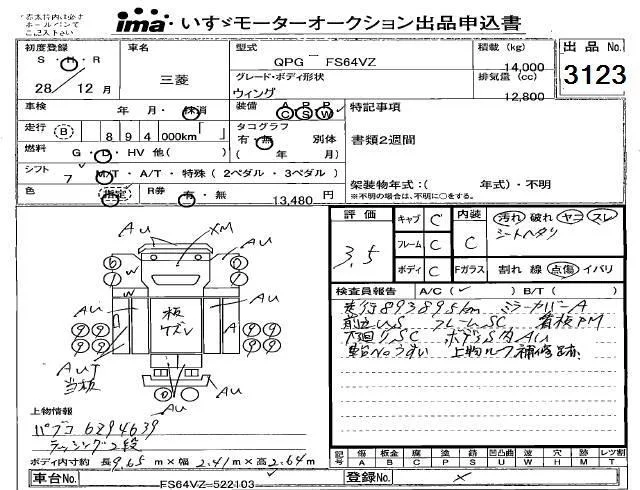 赤太枠内は必ず
ボールペンで
ご記入下さい
ima いすゞモーターオークション出品申込書
初度登録 S・H・R 28/ 12月
車名 三菱
型式 QPG FS64VZ
積載(kg) 14,000
出品No. 3123
グレード・ボディ形状 ウィング
排気量(cc) 12,800
車検 年・月・抹消
装備 A P P C S W
特記事項
書類2週間
走行 B 894000km
タコグラフ 有・無 別体 ( 年 月)
燃料 G・D・HV 他( )
シフト 7 M/T・A/T・特殊(2ペダル・3ペダル)
架装物年式:( 年式)・不明
※不明の場合は、不明に○をする。
色 指定 R券 有・無 13,480円
評価 3.5
キャブ C 内装 C 汚れ 破れ ヤニ スレ
シートヘタリ
フレーム C
ボディ C Fガラス 割れ 線 点傷 イバリ
検査員報告 A/C( ✓ ) B/T( )
走行893895km ミラーカバーA
下廻りSC ボデーS内AU
車台Noうすい 上物ルーフ補修跡
AU XM
AU
W
W
AU 板ケズレ AU A
当板
AU AU
AU
上物情報
パブコ 6294639
ラッシング2段
ボディ内寸約 長9.65m×幅2.41m×高2.64m
記号 傷A 板金B 腐C 塗P 錆S 凹凸曲U 波W 穴H 跡M レツ割T
車台No. FS64VZ-522103
登録No. ×